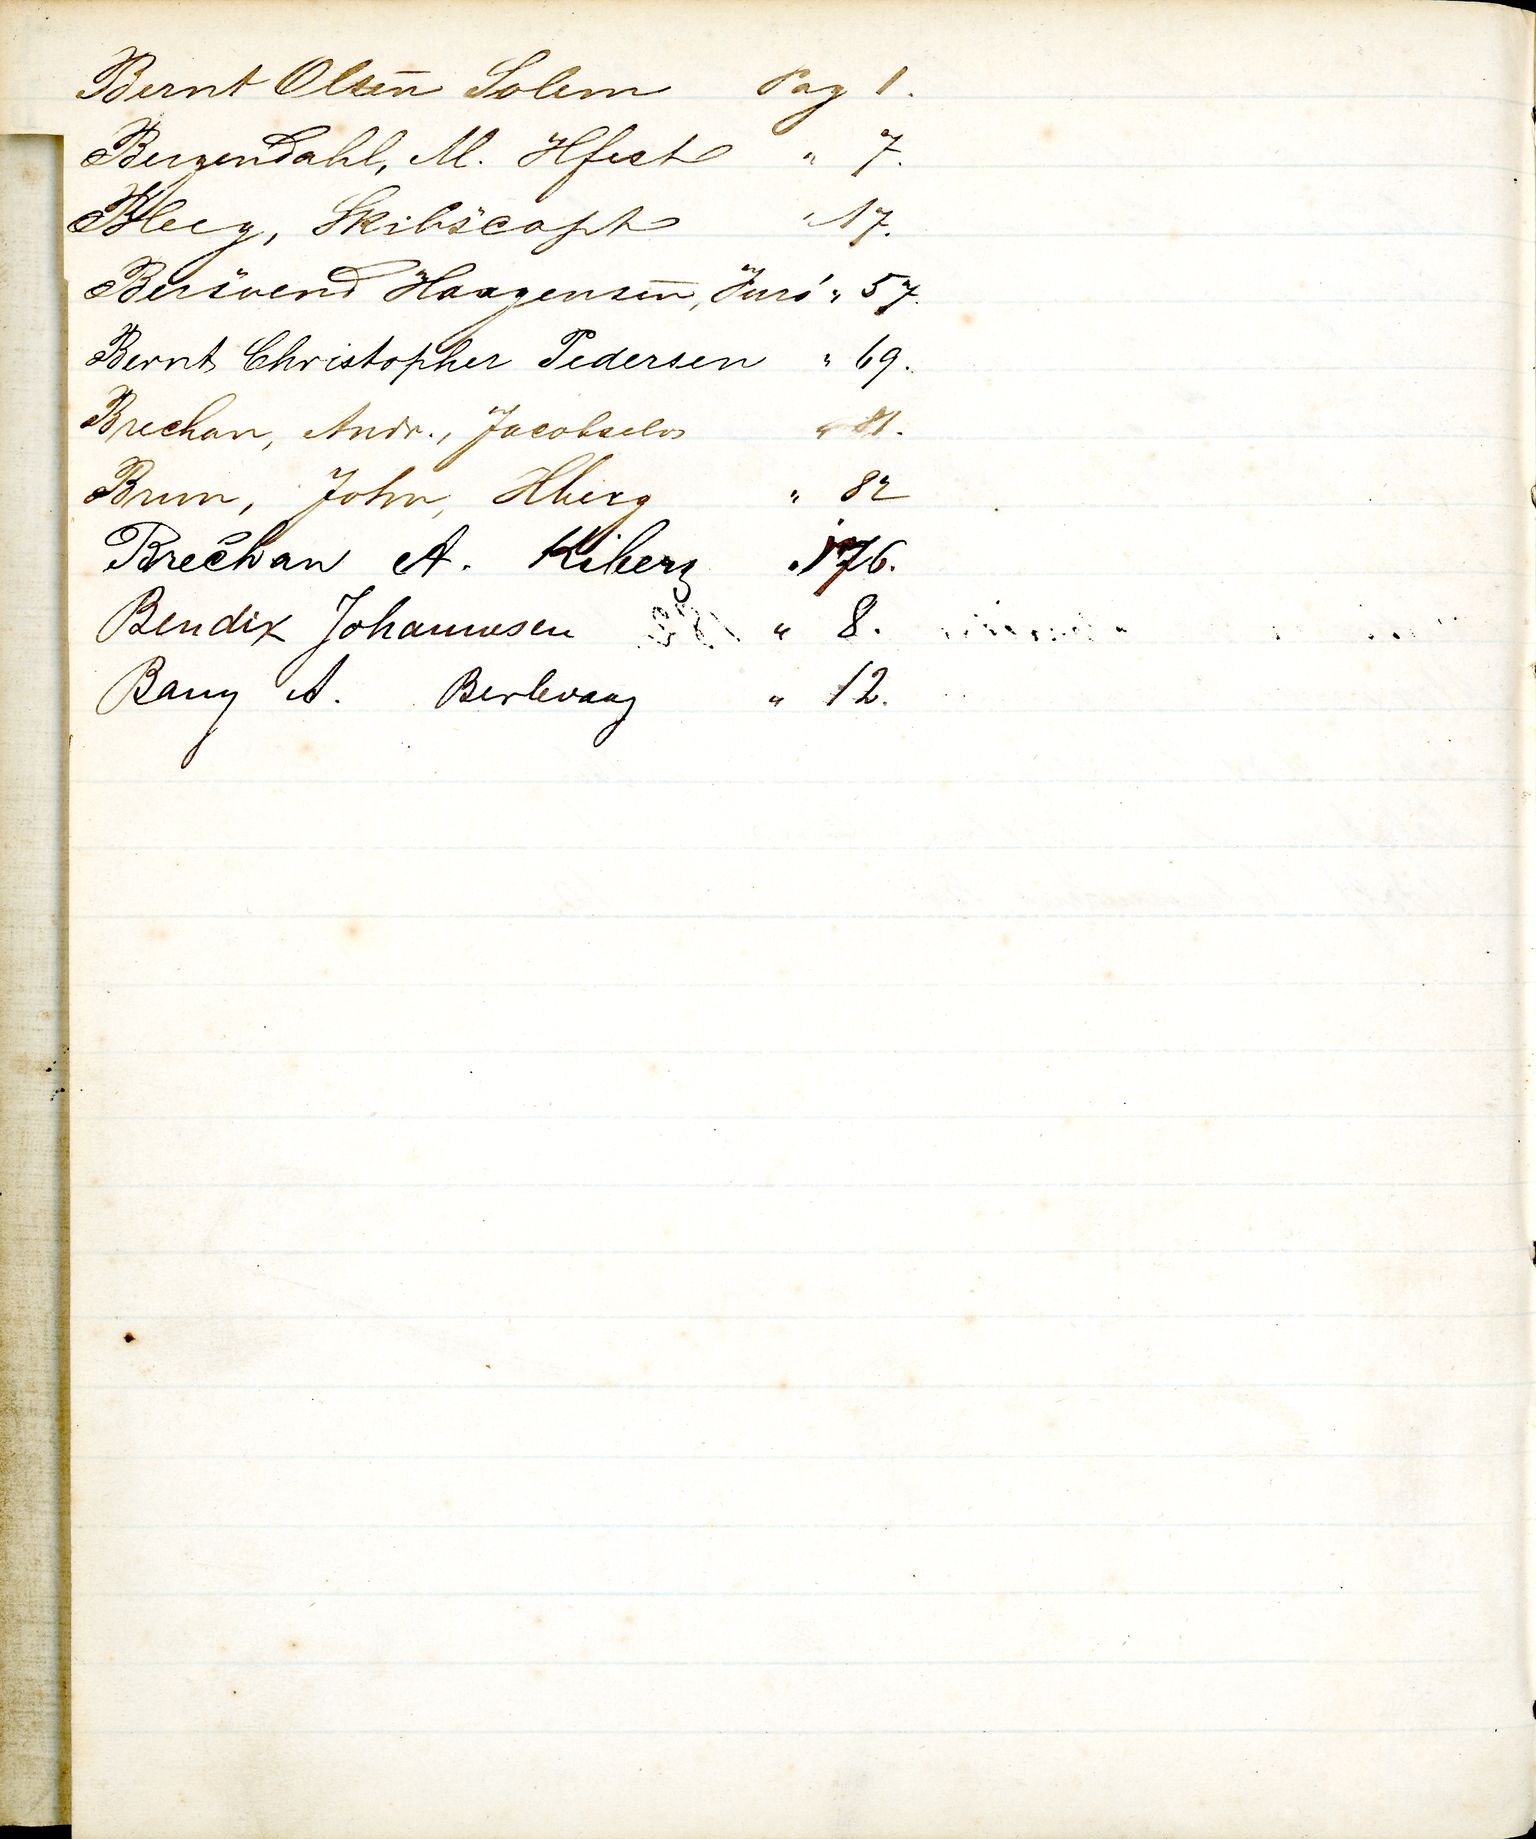 Bernt Olsen Solem Pag 1.
Bergendahl, M. Hfest " 7.
Bleeg, Skibscapt " 17.
Bersvend Haagensen, " 57.
Bernt Christopher Pedersen " 69.
Brechan, Andr., Jacobselv " 81.
Brun, John, Hberg " 82
Brechan A. Kiberg " 176.
Bendix Johannesen " 8.
Bang A. Berlevaag " 12.